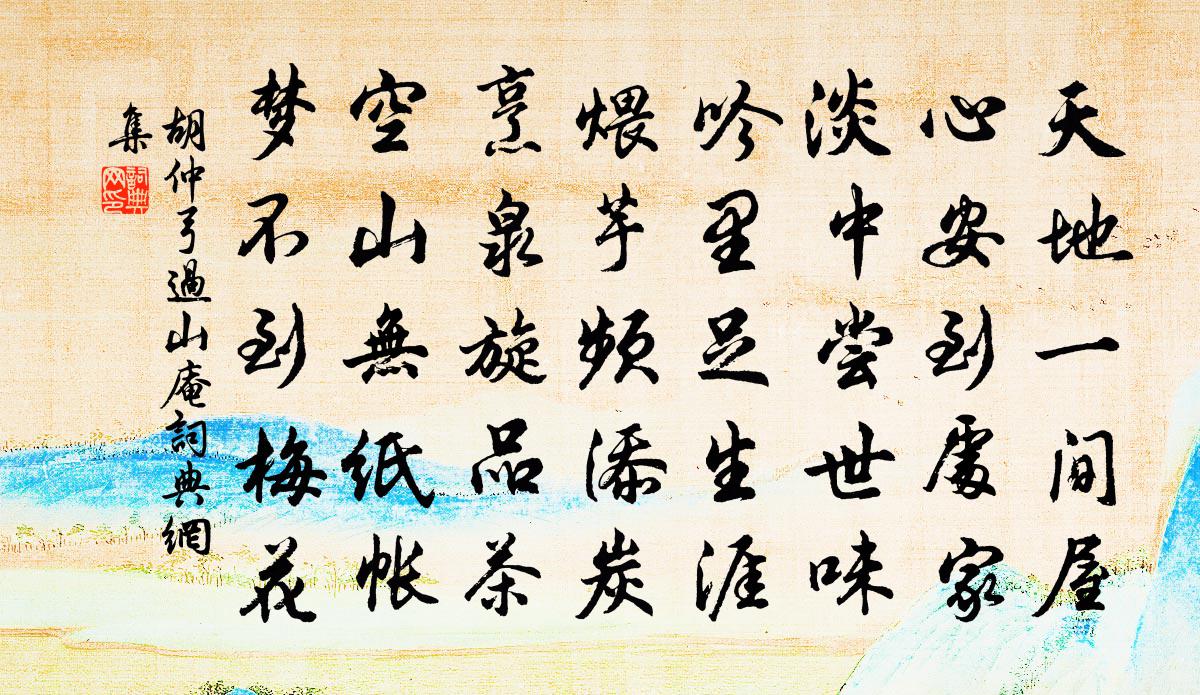 天地一间屋
心安到處家
淡中尝世味
吟里足生涯
煨芋频添炭
烹泉旋品茶
空山無纸帐
梦不到梅花
胡仲弓過山庵詞典網
集
詞典
网印